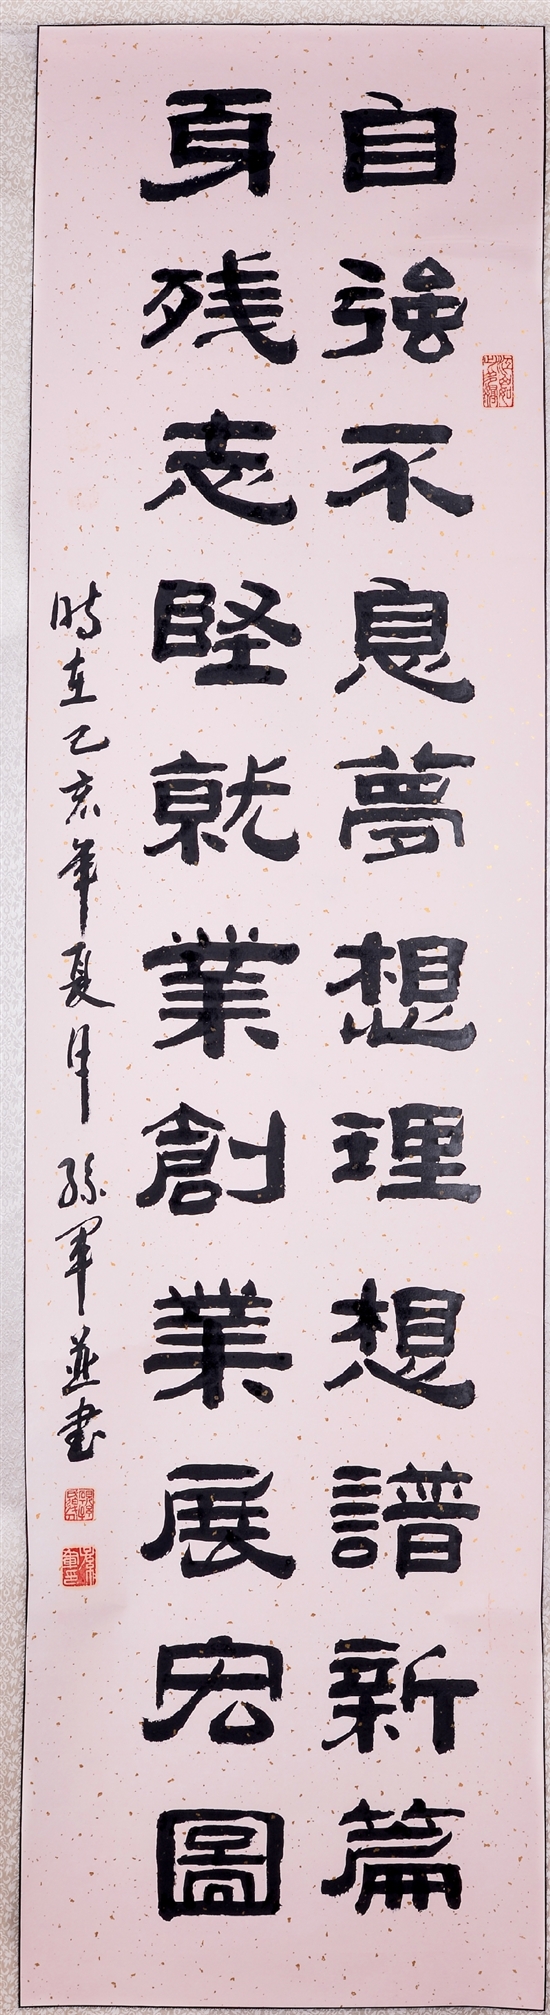 自強不息夢想理想譜新篇
身残志堅就業創業展宏圖
時在己亥年夏月 孫軍並書